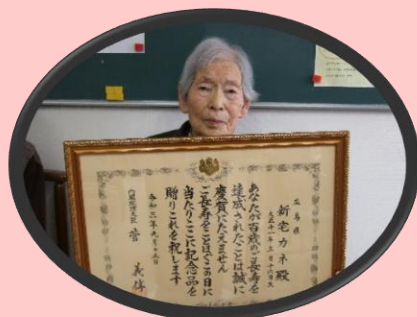 広島県
新宅カネ殿
大正十一年三月十六日生
あなたが百歳のご長寿を
達成されたことは誠に
慶賀にたえません
ご長寿をことほぐこの日に
当たりここに記念品を
贈りこれを祝します
令和三年九月十五日
内閣総理大臣 菅 義偉